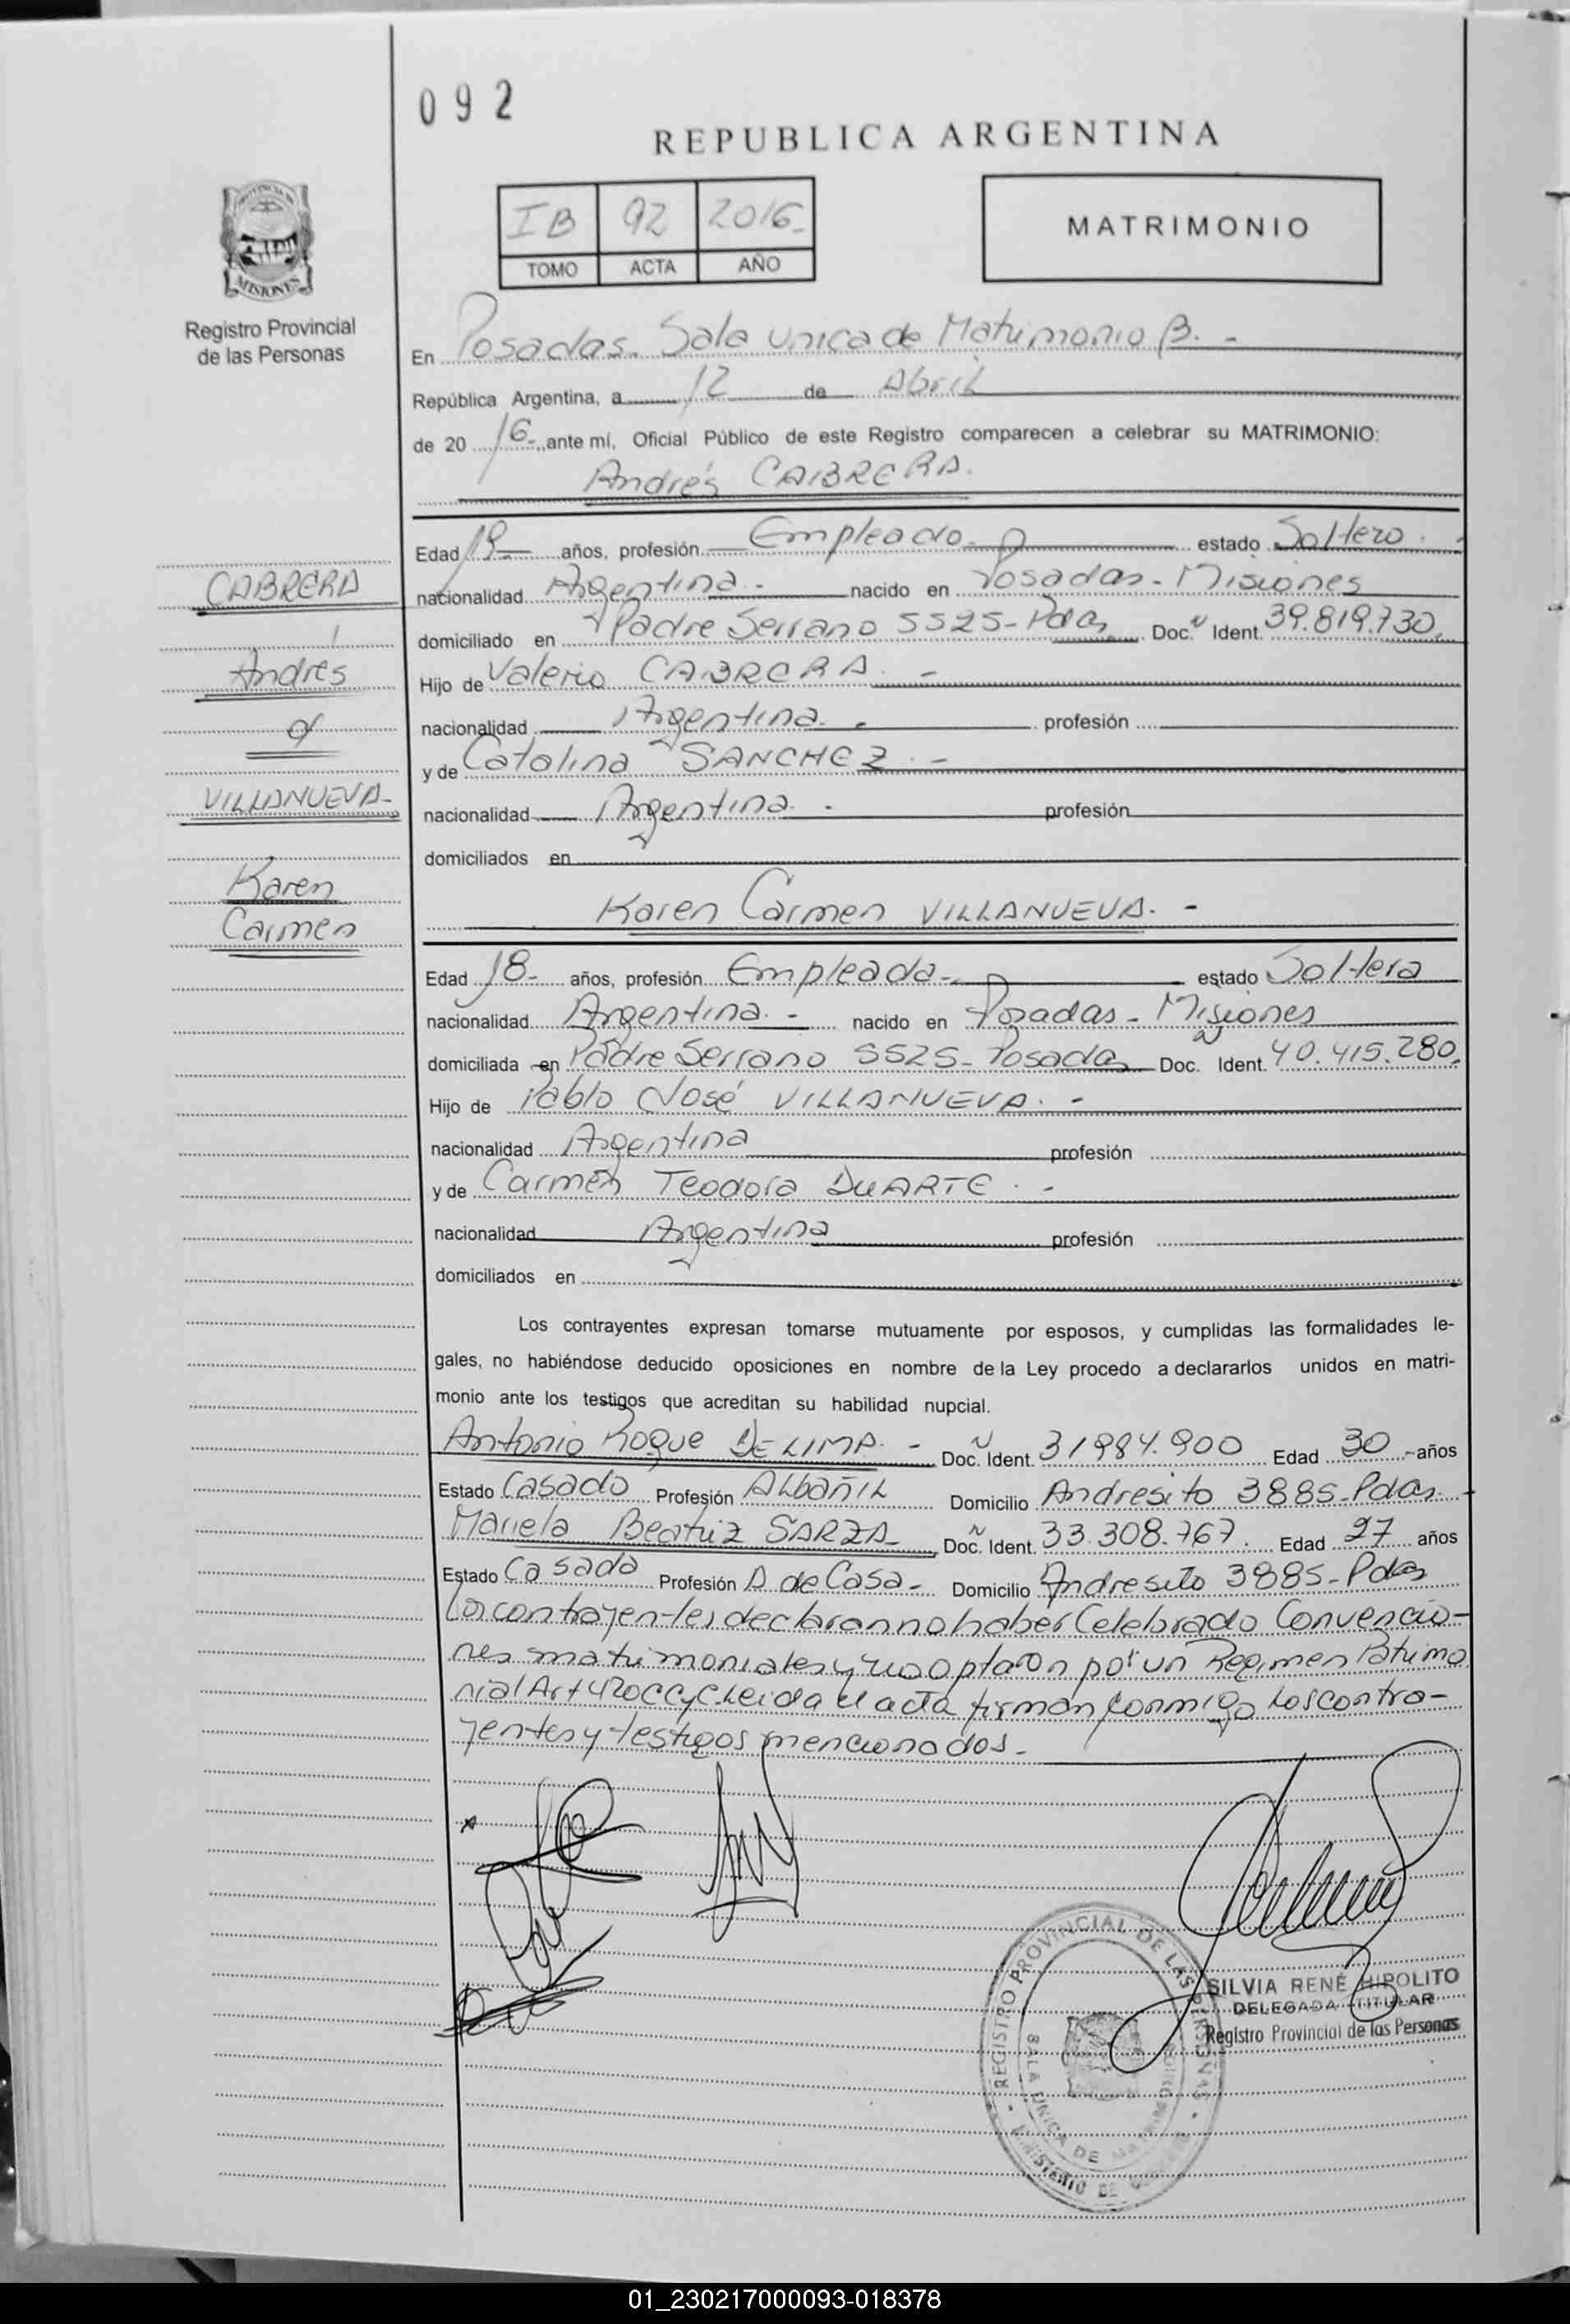 092
REPUBLICA ARGENTINA
IB 92 2016-
TOMO ACTA AÑO
MATRIMONIO
MISIONES
Registro Provincial
de las Personas
En Posadas. Sala unica de Matrimonio B. -
República Argentina, a 12 de Abril
de 20 16- ante mí, Oficial Público de este Registro comparecen a celebrar su MATRIMONIO:
Andrés CABRERA.
Edad 19- años, profesión Empleado- estado Soltero.
CABRERA
nacionalidad Argentina.- nacido en Posadas-Misiones
domiciliado en Padre Serrano 5525-Pdas Doc. Ident. 39.819.730.
Andres
Hijo de Valerio CABRERA. -
nacionalidad Argentina. profesión
y de Catalina SANCHEZ.-
VILLANUEVA-
nacionalidad Argentina. profesión
domiciliados en
Karen
Carmen
Karen Carmen VILLANUEVA. -
Edad 18- años, profesión Empleada- estado Soltera
nacionalidad Argentina.- nacido en Posadas-Misiones
domiciliada en Padre Serrano 5525-Posadas Doc. Ident. 40.415.280.
Hijo de Pablo José VILLANUEVA.-
nacionalidad Argentina profesión
y de Carmen Teodora DUARTE.-
nacionalidad Argentina profesión
domiciliados en
Los contrayentes expresan tomarse mutuamente por esposos, y cumplidas las formalidades le-
gales, no habiéndose deducido oposiciones en nombre de la Ley procedo a declararlos unidos en matri-
monio ante los testigos que acreditan su habilidad nupcial.
Antonio Roque DE LIMA.- Doc. Ident. 31984.900 Edad 30 años
Estado Casado Profesión Albañil Domicilio Andresito 3885-Pdas.
Mariela Beatriz SARZA- Doc. Ident. 33.308.767. Edad 27 años
Estado Casada Profesión A de Casa- Domicilio Andresito 3885-Pdas
Los contrayentes declaran no haber Celebrado Convencio-
nes matrimoniales y no optaron por un Regimen Patrimo
nial Art 420CCyC. Leida el acta firman conmigo los contra-
yentes y testigos mencionados-
REGISTRO PROVINCIAL DE LAS PERSONAS
SALA UNICA DE
MINISTERIO DE
SILVIA RENÉ HIPOLITO
DELEGADA TITULAR
Registro Provincial de las Personas
01_230217000093-018378